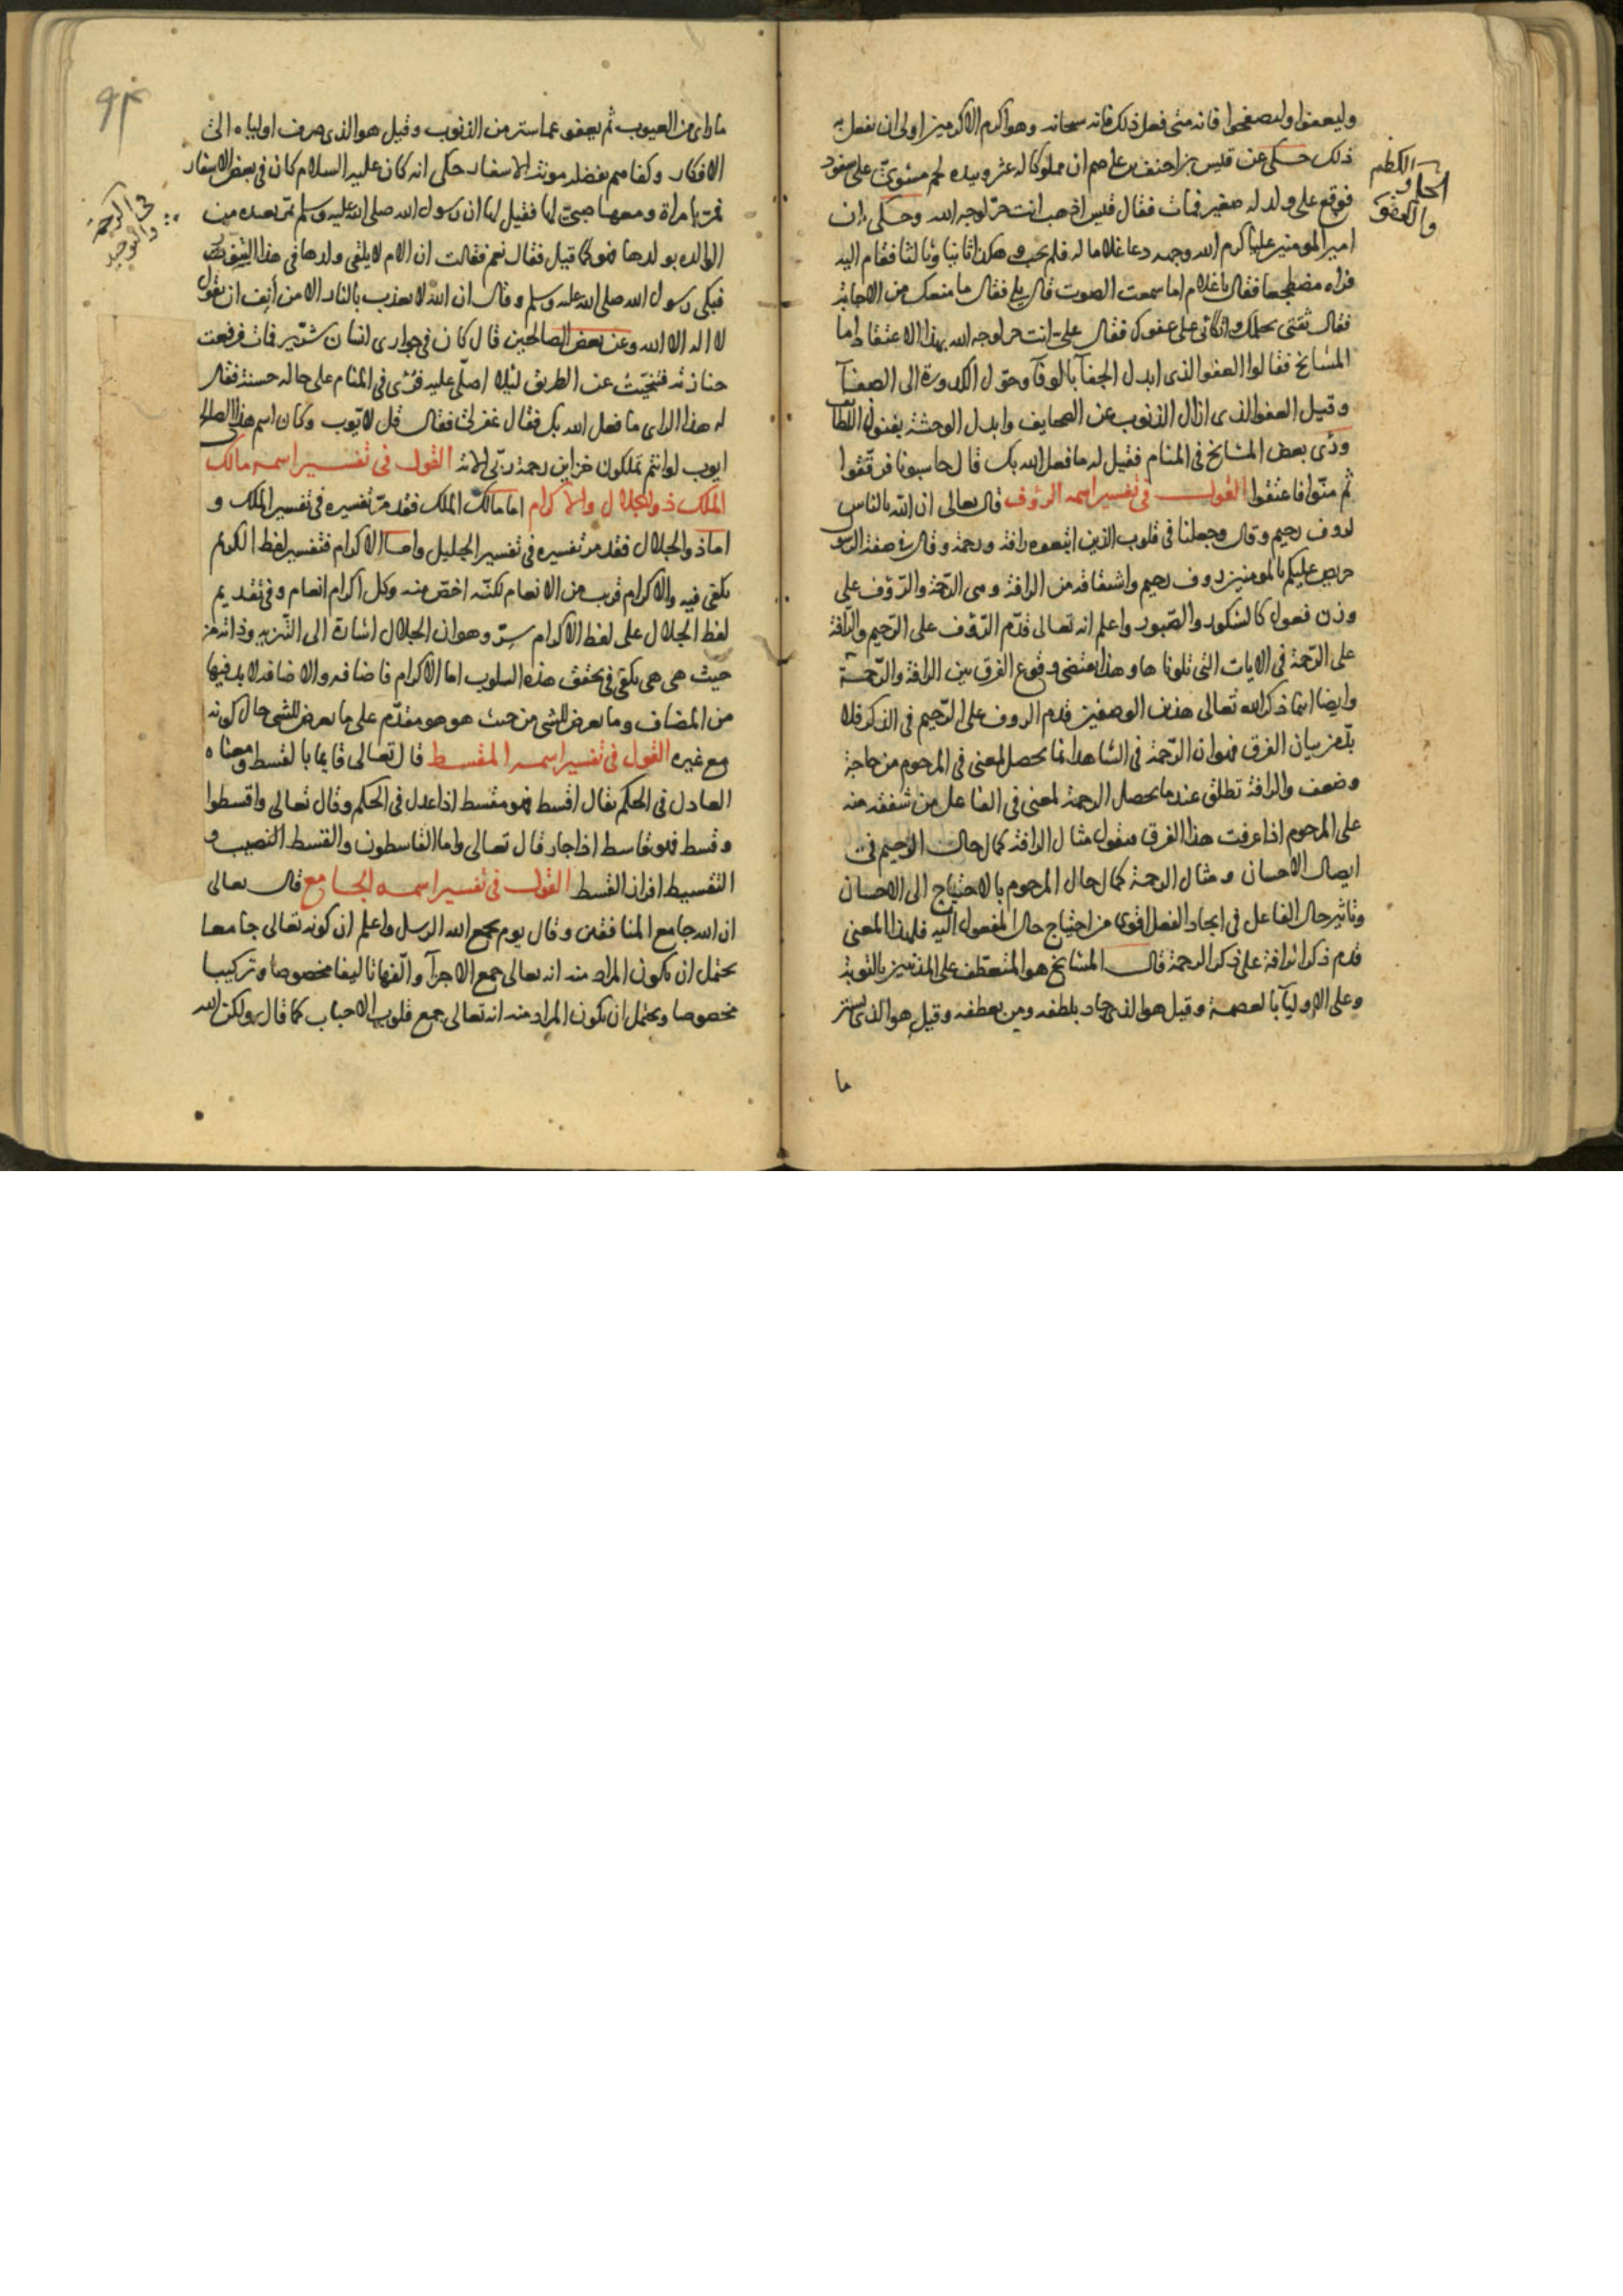 وليعفوا وليصفحوا فانه متى فعل ذلك فانه سبحانه وهو اكرم الاكرمين اولى ان يفعل به
ذلك حكى عن قيس بن احنف بن عاصم ان مملوكا له عثر وبيده لحم مشوى على سفود
فوقع على ولد له صغير فمات فقال قيس اذهب انت حر لوجه الله وحكى ان
امير المومنين عليا كرم الله وجهه دعا غلاما له فلم يجب وهكذا ثانيا وثالثا فقام اليه
فراه مضطجعا فقال يا غلام اما سمعت الصوت قال بلى فقال ما منعك من الاجابة
فقال ثقتى بحلمك واتكالى على عفوك فقال على انت حر لوجه الله بهذا الاعتقاد اما
المشايخ فقالوا العفو الذى ابدل الجفآ بالوفآ وحول الكدورة الى الصفآ
وقيل العفو الذى ازال الذنوب عن الصحايف وابدل الوحشة بفنون اللطا
ورئى بعض المشايخ فى المنام فقيل له ما فعل الله بك قال حاسبونا فدققوا
ثم منّوا فاعتقوا القول فى تفسير اسمه الرؤف قال تعالى ان الله بالناس
لروف رحيم وقال وجعلنا فى قلوب الذين اتبعوه رافة ورحمة وقال فى صفة الرسو
حريص عليكم بالمومنين روف رحيم واشتقاقه من الرافة وهى الرّحمة والرّؤف على
وزن فعول كالشكور والصّبور واعلم انه تعالى قدّم الرّؤف على الرّحيم والرّافة
على الرّحمة فى الايات التى تلوناها وهذا يقتضى وقوع الفرق بين الرافة والرّحمة
وايضا انما ذكر الله تعالى هذين الوصفين قدم الروف على الرّحيم فى الذكر فلا
بدّ من بيان الفرق فهو ان الرّحمة فى الشاهد انما يحصل لمعنى فى المرحوم من حاجة
وضعف والرافة تطلق عند ما يحصل الرحمة لمعنى فى الفاعل من شفقة منه
على المرحوم اذا عرفت هذا الفرق فنقول مثال الرافة كمال حال الرحيم فى
ايصال الاحسان ومثال الرحمة كمال حال المرحوم بالاحتياج الى الاحسان
وتاثير حال الفاعل فى ايجاد الفعل اقوى من احتياج حال المفعول اليه فلهذا المعنى
قدم ذكر الرافة على ذكر الرحمة قال المشايخ هو المتعطف على المذنبين بالتوبة
وعلى الاوليآ بالعصمة وقيل هو الذى جاد بلطفه ومن بعطفه وقيل هو الذى ستر
ما
الحلم
والكظم
والعفو
٩٣
ما راى من العيوب ثم يعفو عما ستر من الذنوب وقيل هو الذى صرف اوليآه الى
الافكار وكفاهم بفضله مونة الاسفار حكى انه كان عليه السلام كان فى بعض الاسفار
فمرّ بامراة ومعها صبى لها فقيل لها ان رسول الله صلى الله عليه وسلم
الوالدة بولدها فهو كما قيل فقال نعم فقالت ان الام لا يلقى ولدها فى هذا التنور
فبكى رسول الله صلى الله عليه وسلم وقال ان الله لا يعذب بالنار الا من أنِف ان يقول
لا اله الا الله وعن بعض الصالحين قال كان فى جوارى انسان شرّير فمات فرفعت
جنازته فتنحّيت عن الطريق لئلا اصلّى عليه فرئى فى المنام على حالة حسنة فقال
له هذا الراى ما فعل الله بك فقال غفر لى فقال قل لايّوب وكان اسم هذا الصالح
ايوب لو انتم تملكون خزاين رحمة ربّى الاية القول فى تفسير اسمه مالك
الملك ذو الجلال والاكرام اما مالك الملك فقد مرّ تفسيره فى تفسير الملك و
اما ذو الجلال فقد مر تفسيره فى تفسير الجليل واما الاكرام فتفسير لفظ الكريم
يكفى فيه والاكرام قريب من الانعام لكنّه اخصّ منه وكل اكرام انعام وفى تقديم
لفظ الجلال على لفظ الاكرام سرّ وهو ان الجلال اشارة الى التّنزيه وذاته من
حيث هى هى يكفى فى تحقق هذه السلوب اما الاكرام فاضافه والاضافه لا بد فيها
من المضاف وما يعرض للشى من حيث هو هو مقدّم على ما يعرض للشى حال كونه
مع غيره القول فى تفسير اسمه المقسط قال تعالى قايما بالقسط ومعناه
العادل فى الحكم يقال اقسط فهو مقسط اذا عدل فى الحكم وقال تعالى واقسطوا
وقسط فهو قاسط اذا جار قال تعالى واما القاسطون والقسط النصيب و
التقسيط افراز القسط القول فى تفسير اسمه الجامع قال تعالى
ان الله جامع المنافقين وقال يوم يجمع الله الرسل واعلم ان كونه تعالى جامعا
يحتمل ان يكون المراد منه انه تعالى جمع الاجزآ والّفها تاليفا مخصوصا وتركيبا
مخصوصا ويحتمل ان يكون المراد منه انه تعالى جمع قلوب الاحباب كما قال ولكن الله
فى الرحمة
والتوحيد